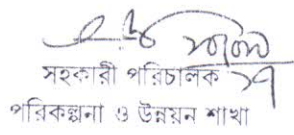 সহকারী পরিচালক
পরিকল্পনা ও উন্নয়ন শাখা